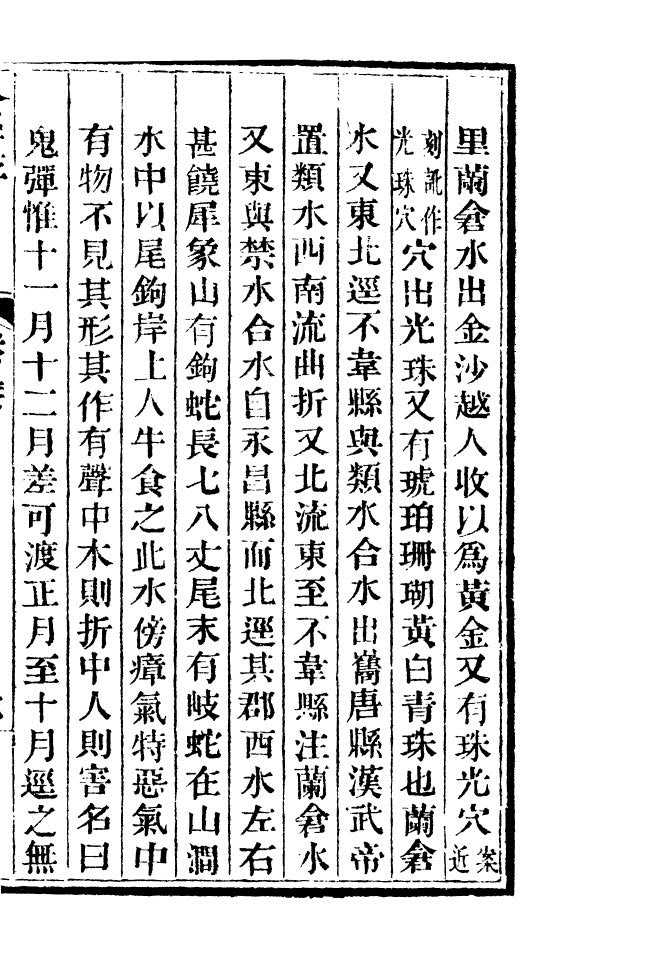 里蘭倉水出金沙越人收以爲黃金又有珠光穴案近
刻訛作光珠穴穴出光珠又有琥珀珊瑚黃白青珠也蘭倉
水又東北逕不韋縣與類水合水出巂唐縣漢武帝
置類水西南流曲折又北流東至不韋縣注蘭倉水
又東與禁水合水自永昌縣而北逕其郡西水左右
甚饒犀象山有鉤蛇長七八丈尾末有岐蛇在山澗
水中以尾鉤岸上人牛食之此水傍瘴氣特惡氣中
有物不見其形其作有聲中木則折中人則害名曰
鬼彈惟十一月十二月差可渡正月至十月逕之無